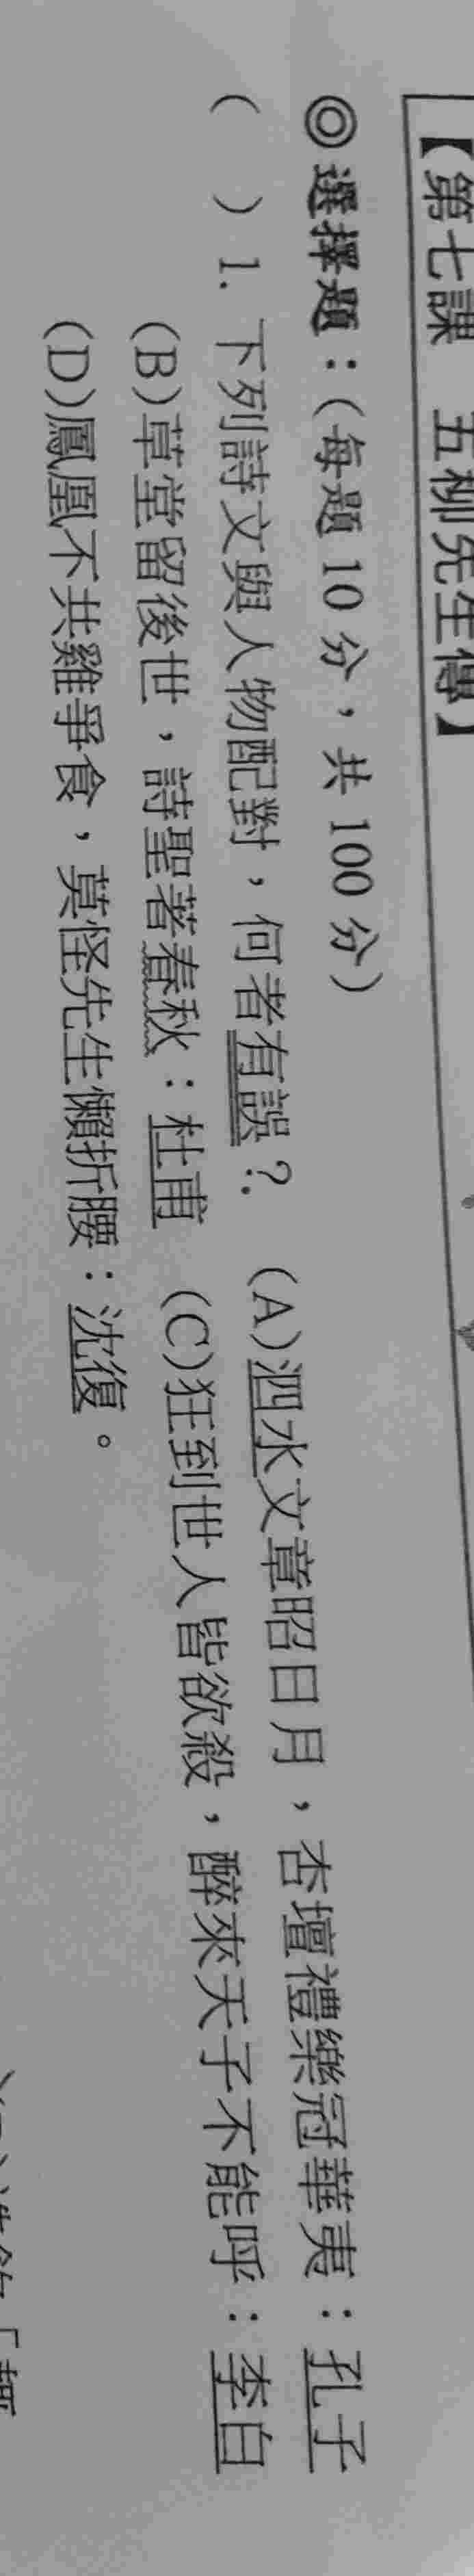 【第七課 五柳先生傳】
◎選擇題：(每題 10 分，共 100 分)
( ) 1. 下列詩文與人物配對，何者有誤？ (A)泗水文章昭日月，杏壇禮樂冠華夷：孔子
(B)草堂留後世，詩聖著春秋：杜甫 (C)狂到世人皆欲殺，醉來天子不能呼：李白
(D)鳳凰不共雞爭食，莫怪先生懶折腰：沈復。